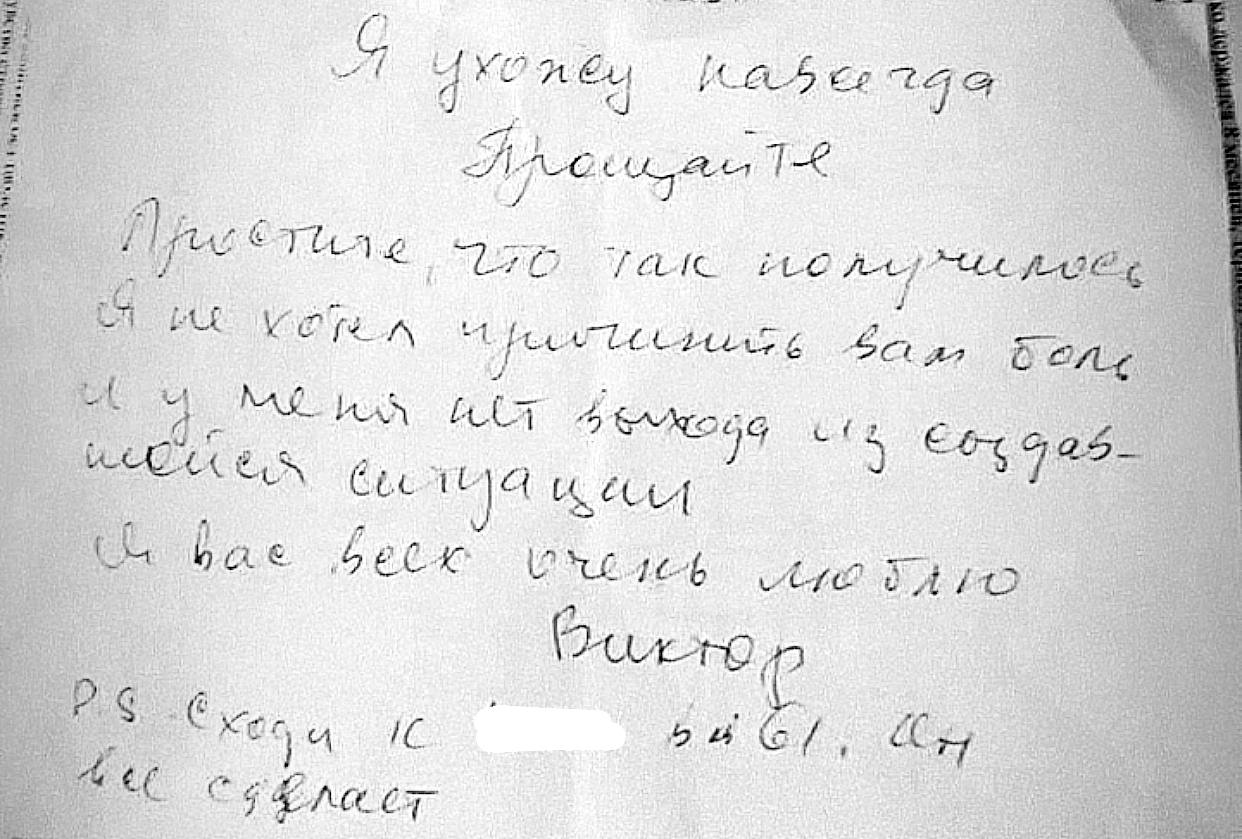 Я ухожу навсегда
Прощайте
Простите, что так получилось
Я не хотел причинить вам боль
и у меня нет выхода из создав-
шейся ситуации
Я вас всех очень люблю
Виктор
P.S Сходи к 61. Он
все сделает